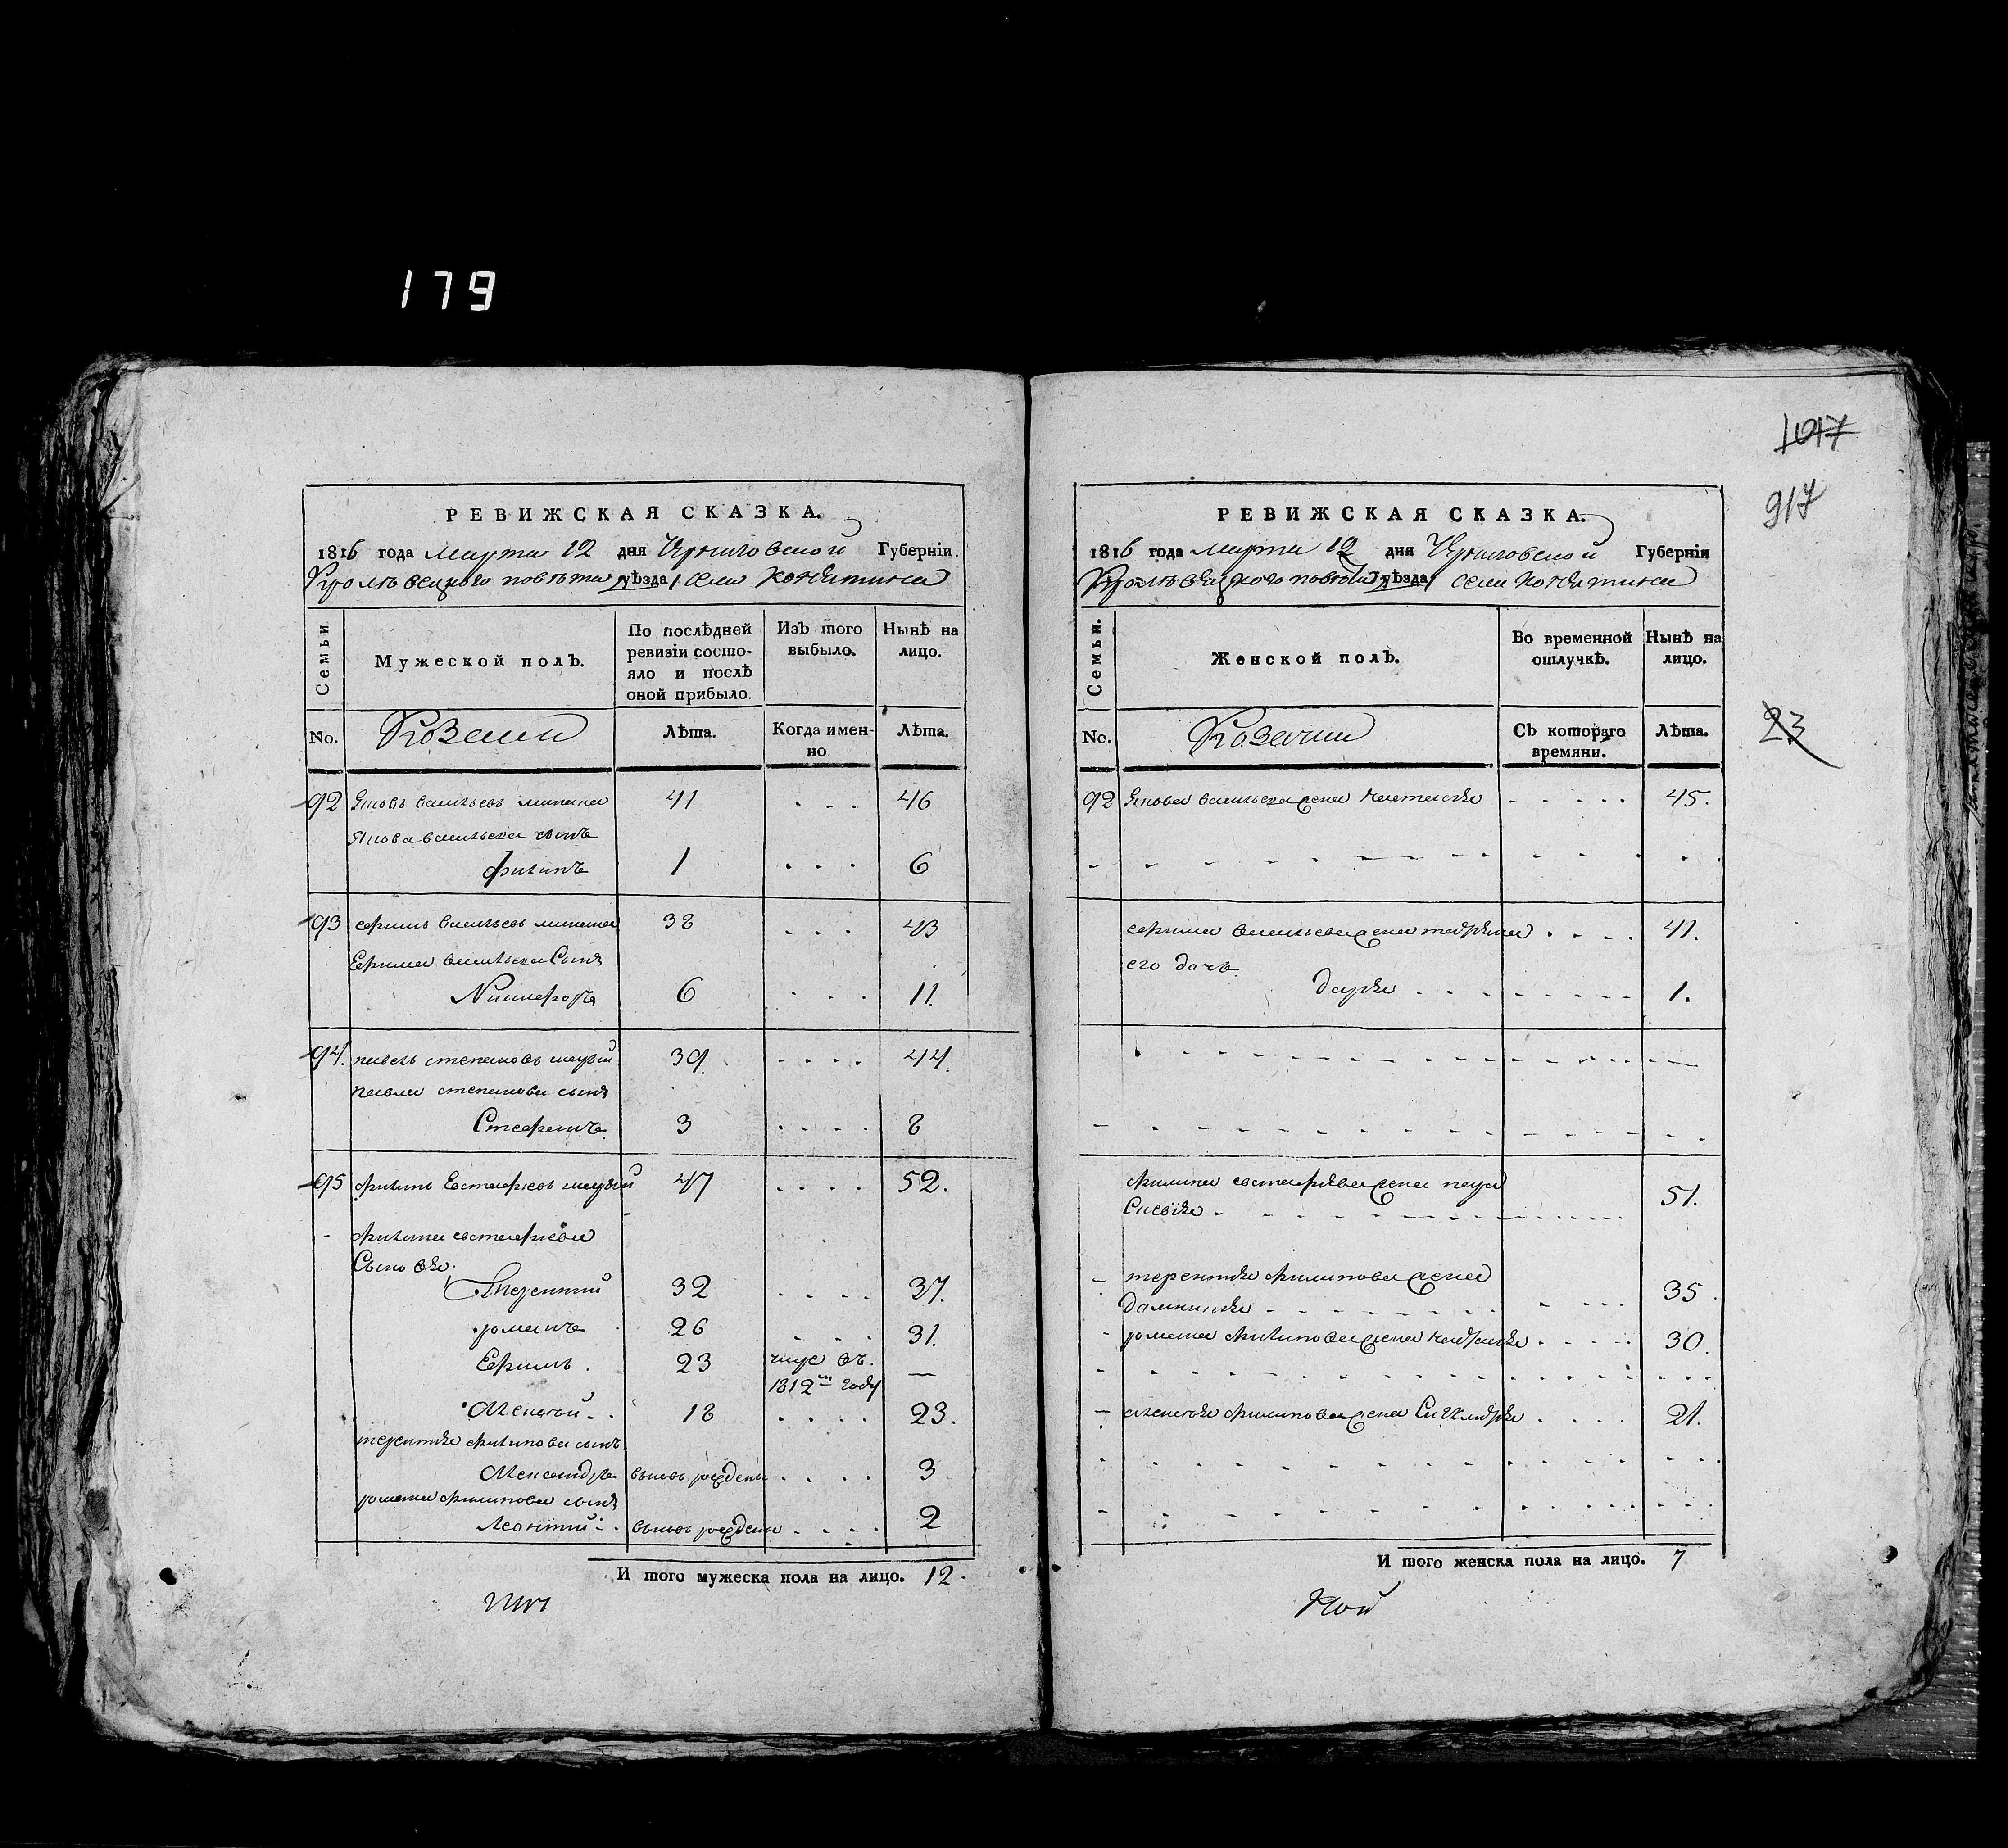 179
1017
917
23
РЕВИЖСКАЯ СКАЗКА.
1816 года марта 12 дня Черниговской Губернiи.
Кролевецкого повета /уѣзда/ села
Семьи
No.
Мужеской полъ.
Козаки
По послѣдней ревизiи состо-
яло и послѣ
оной прибыло.
Лѣта.
Изъ того
выбыло.
Когда имен-
но
Нынѣ на
лицо.
Лѣта.
92 Яковъ васильевъ 41 . . . 46
Якова васильева сынъ
филипъ 1 . . . 6
93 ефимъ васильевъ 38 . . . 43
Ефима васильева Сынъ
Никифоръ 6 . . . 11.
94. павелъ степановъ 39. . . . . 44.
павла степанова сынъ
Стефанъ. 3 . . . . 8
95 филипъ Евстафиевъ 47 . . . . 52.
филипа евстафиева
Сыновья.
Терентий 32 . . . . 37.
романъ 26 . . . . 31.
Ефимъ. 23 въ. —
1812м году
Алексей. 18 . . . . 23.
терентия филипова сынъ
Александръ вновь рожденъ . . . . 3
романа филипова сынъ
Леонтий вновь рожденъ . . . . 2
И того мужеска пола на лицо. 12.
РЕВИЖСКАЯ СКАЗКА.
1816 года марта 12 дня Черниговской Губернiи
Кролевецкого повета /уѣзда/ села
Семьи.
No.
Женской полъ.
Козачки
Во временной
отлучкѣ.
Съ котораго
времяни.
Нынѣ на
лицо.
Лѣта.
92 Якова васильева жена наталия 45.
ефима васильева жена 41.
его дочь
дария 1.
филипа евстафиева жена 51.
терентия филипова жена
домникия 35.
романа филипова жена 30.
алексея филипова жена 21.
И того женска пола на лицо. 7